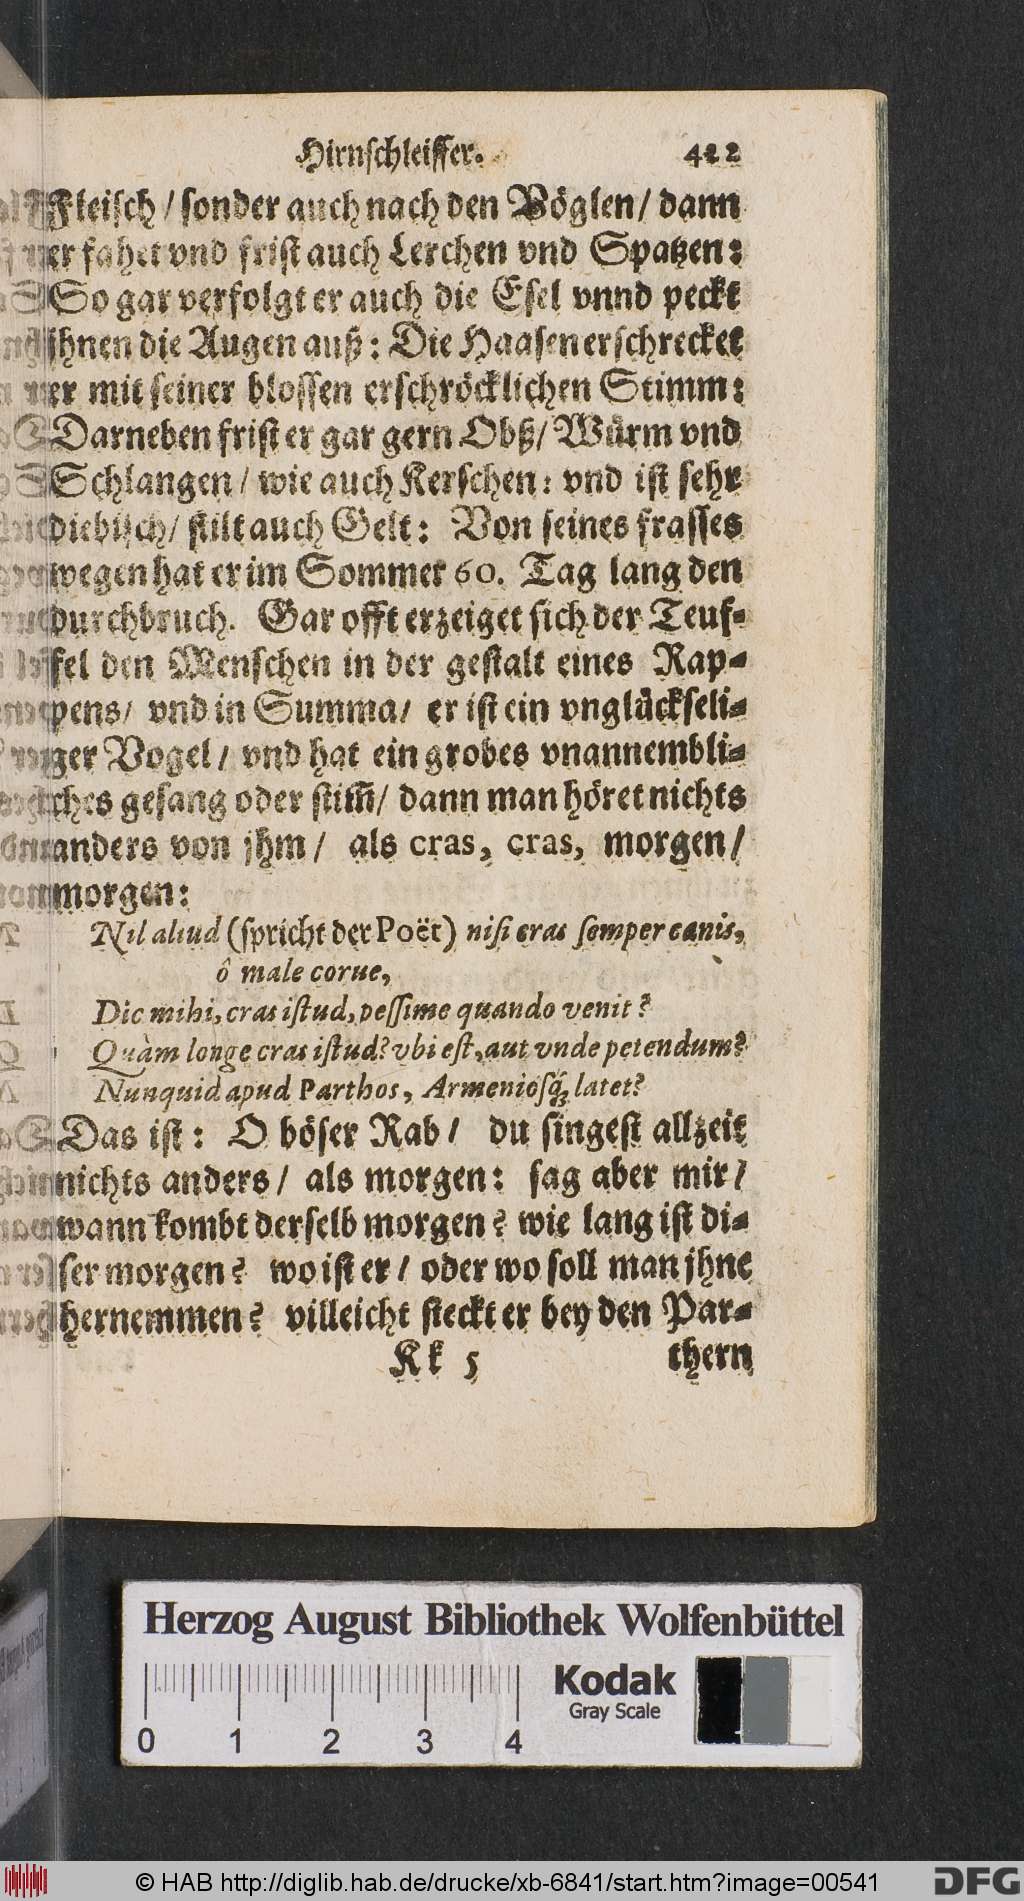 Hirnschleiffer. 422
Fleisch / sonder auch nach den Vöglen / dann
er fahet vnd frist auch Lerchen vnd Spatzen:
So gar verfolgt er auch die Esel vnnd peckt
jhnen die Augen auß: Die Haasen erschrecket
er mit seiner blossen erschröcklichen Stimm:
Darneben frist er gar gern Obß / Würm vnd
Schlangen / wie auch Kerschen: vnd ist sehr
diebisch / stilt auch Gelt: Von seines frasses
wegen hat er im Sommer 60. Tag lang den
durchbruch. Gar offt erzeiget sich der Teuf-
fel den Menschen in der gestalt eines Rap-
pens / vnd in Summa / er ist ein vnglückseli-
ger Vogel / vnd hat ein grobes vnannembli-
ches gesang oder stim̄ / dann man höret nichts
anders von jhm / als cras, cras, morgen /
morgen:
Nil aliud (spricht der Poët) nisi cras semper canis,
ô male corue,
Dic mihi, cras istud, pessime quando venit?
Quàm longe cras istud? vbi est, aut vnde petendum?
Nunquid apud Parthos, Armeniosq́; latet?
Das ist: O böser Rab / du singest allzeit
nichts anders / als morgen: sag aber mir /
wann kombt derselb morgen? wie lang ist di-
ser morgen? wo ist er / oder wo soll man jhne
hernemmen? villeicht steckt er bey den Par-
Kk 5 thern
Herzog August Bibliothek Wolfenbüttel
Kodak
Gray Scale
0 1 2 3 4
© HAB http://diglib.hab.de/drucke/xb-6841/start.htm?image=00541 DFG